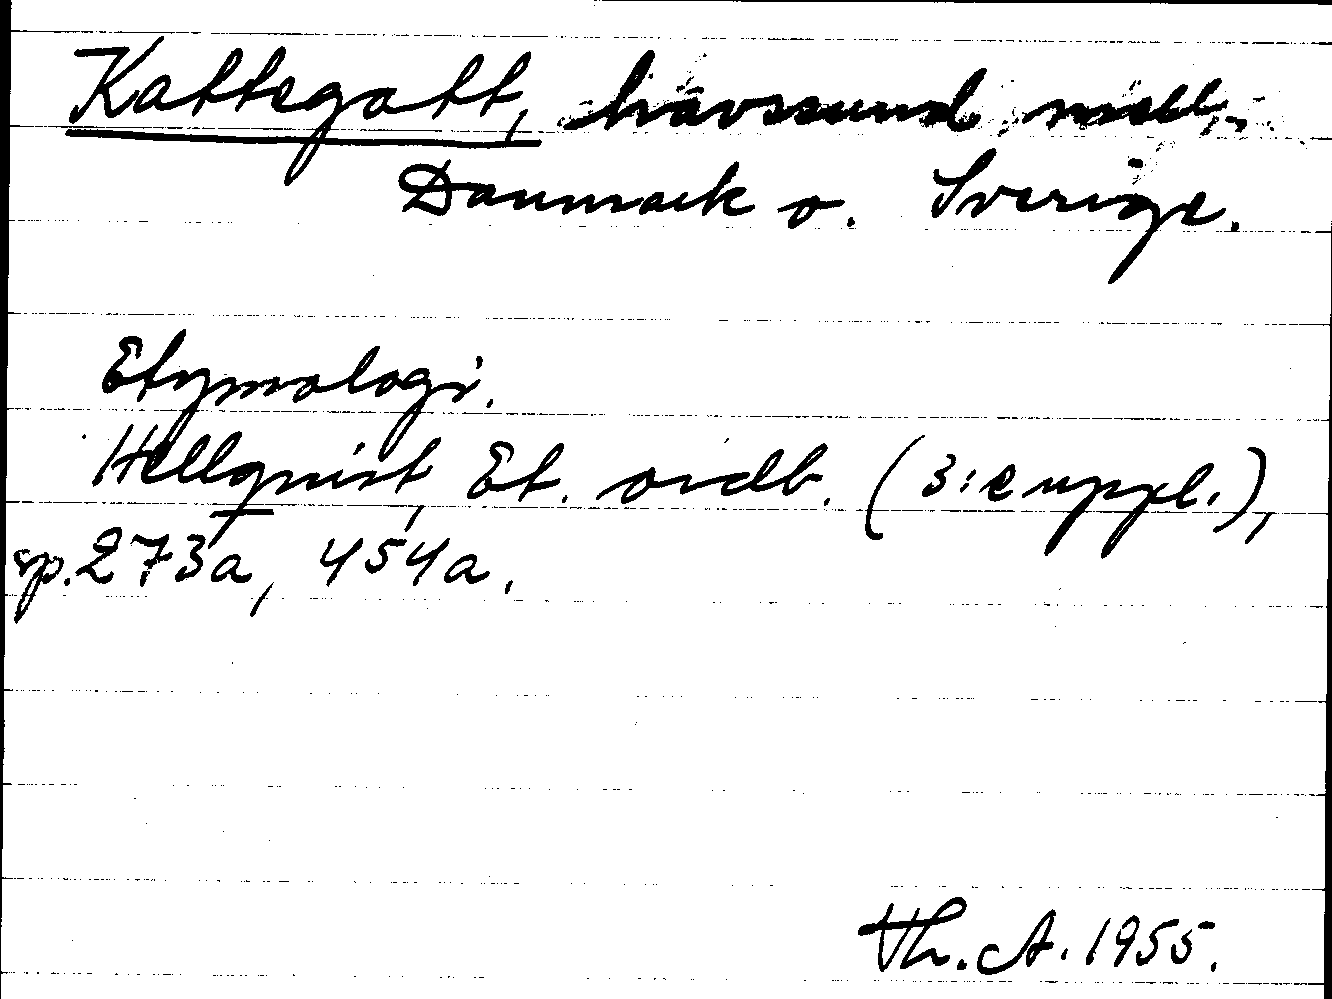 Kattegatt, havssund mell.
Danmark o. Sverige.
Etymologi.
Hellquist, Et. ordb. (3:e uppl.),
sp. 273a, 454a.
Th. A. 1955.